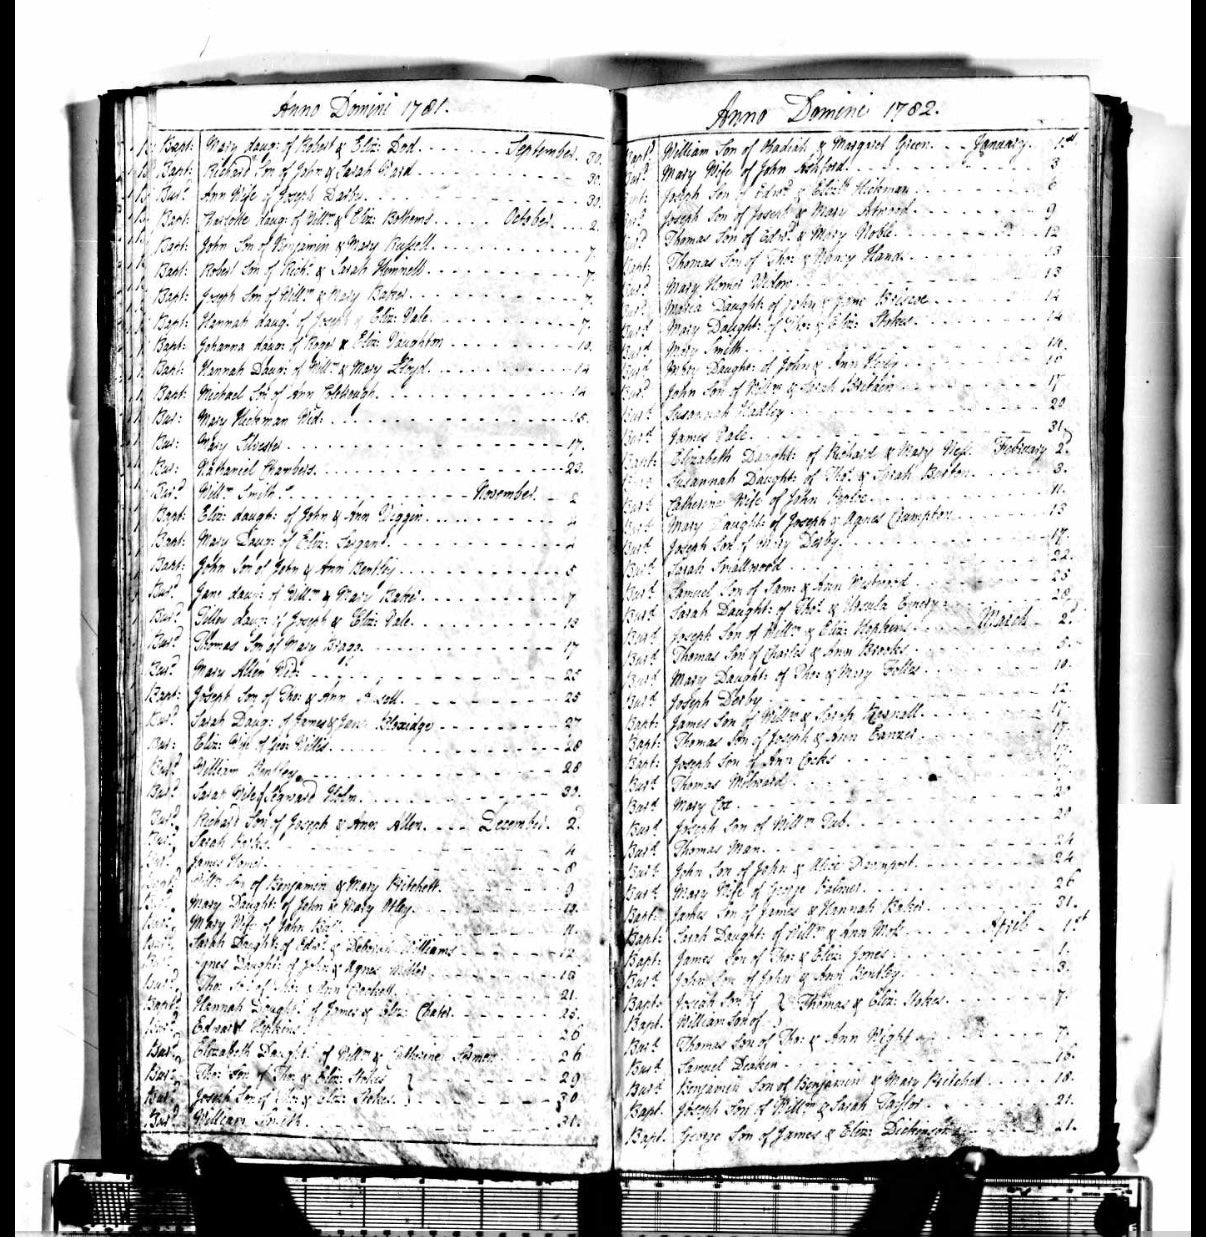 Anno Domini 1781.
Bapt: Mary daug: of Robert & Eliz: Dod September 30.
Bapt: Richard Son of John & Sarah Ward 30.
Bur.d Ann Wife of Joseph Darby 30.
Bapt: Charlotte daug: of Will.m & Eliz: Bothems October 2.
Bapt: John Son of Benjamin & Mary Russell 7.
Bapt: Robert Son of Rich.d & Sarah Hemnell 7.
Bapt: Joseph Son of Will.m & Mary Bates 7.
Bapt: Hannah daug: of Joseph & Eliz: Vale 7.
Bapt: Johanna daug: of Roger & Eliz: Vaughton 10.
Bapt: Hannah Daug: of Will.m & Mary Lloyd 14
Bapt: Michael Son of Ann 14
Bur: Mary Hickman Wid: 15.
Bur: Mary Silvester 17.
Bur: Nathaniel Chambers 23.
Bur.d Will.m Smith November 2
Bapt: Eliz: daught: of John & Ann Viggin 4
Bapt: Mary Daug: of Eliz: Sargant 4
Bapt: John Son of John & Ann Bentley 5
Bur.d Jane daug: of Will.m & Mary Bates 7
Bur.d daug: of Joseph & Eliz: Vale 13
Bur.d Thomas Son of Mary Bragg 17
Bur.d Mary Allen Wid: 25
Bapt: Joseph Son of Tho: & Ann 25
Bur.d Sarah Daug: of James & Jane 27
Bur: Eliz: Wife of Geo: Willis 28
Bur.d William Bentley 28
Bur.d Sarah Wife of 30.
Bur.d Richard Son of Joseph & Ann Allen December 2.d
Bur.d Sarah 4
Bur.d James 8
Will.m Son of Benjamin & Mary Pritchett 9
Mary Daught: of John & Mary
Mary Wife of John 11
Sarah Daught: of Edw.d & Deborah Williams 12
Agnes Daught: of John & Agnes 18
Bur.d Tho: Son of & Ann 21.
Bapt.d Hannah Daught: of James & Eliz: Chater 25.
Bur.d Edward Hopkins 26
Bur.d Elizabeth Daught: of Will.m & Catherine 26
Bur.d Tho: Son of Tho: & Eliz: Stokes } 29
Bur.d Joseph Son of Tho: & Eliz: Stokes } 30
Bur.d William Smith 31.
Anno Domini 1782.
Bapt.d William Son of Obadiah & Margaret Green January 1st
Bur.d Mary Wife of John Ashford 3
Joseph Son of Edw.d & Eliz.th Hickman 6
Bur.d Joseph Son of Joseph & Mary Atwood 9
Bur.d Thomas Son of Edw.d & Mary Noble 12
Bapt: Thomas Son of Tho: & Nancy Hand 13
Bur.d Mary Homer Widow 13
Bur.d Maria Daught: of John & Jane Briscoe 14
Bur.d Mary Daught: of Tho: & Eliz: Stokes 14
Bur.d Mary Smith 16
Bur.d Mary Daught: of John & Ann 16
Bur.d John Son of Will.m & Sarah Brittain 17
Bur.d Susannah Hadley 20
Bur.d James Vale 31
Bapt: Elizabeth Daught: of Richard & Mary February 2.d
Susannah Daught: of Tho.s & Sarah Burton 3.
Bur.d Catherine Wife of John 11.
Bur.d Mary Daught: of Joseph & Agnes Crumpton 13
Bur.d Joseph Son of Derby 17.
Bur.d Sarah Smallwood 22.
Bur.d Samuel Son of Sam: & Ann Westwood 25
Bur.d Sarah Daught: of Tho.s & Ursula Emery 28
Bur.d Joseph Son of Will.m & Eliz: Hopkins March 2.d
Bur.d Thomas Son of Charles & Ann Brooks 5
Bur.d Mary Daught: of Tho: & Mary 10.
Bur.d Joseph Derby 12.
Bapt: James Son of Will.m & Sarah 17.
Bapt: Thomas Son of Joseph & Ann 17.
Bapt: Joseph Son of Ann Cocks 17.
Bur.d Thomas
Bur.d Mary Cox 20
Bur.d Joseph Son of Will.m 20
Bur.d Thomas Man 24
Bur.d John Son of John & Alice Davenport 24
Bur.d Mary Wife of George Palmer 26
Bapt: James Son of James & Hannah Baker 31.
Bapt: Sarah Daught: of Will.m & Ann April 1st
Bapt: James Son of Tho: & Eliz: Jones 1.
Bur.d John Son of John & Ann Bentley 3.
Bapt: Josiah Son of } Thomas & Eliz: Stokes 7
Bapt: William Son of }
Bur.d Thomas Son of Tho: & Ann Wight 7.
Bur.d Samuel Deakin 15.
Bur.d Benjamin Son of Benjamin & Mary Pritchet 18.
Bapt. Joseph Son of Will.m & Sarah Taylor 21.
Bapt. George Son of James & Eliz: Dickenson 21.